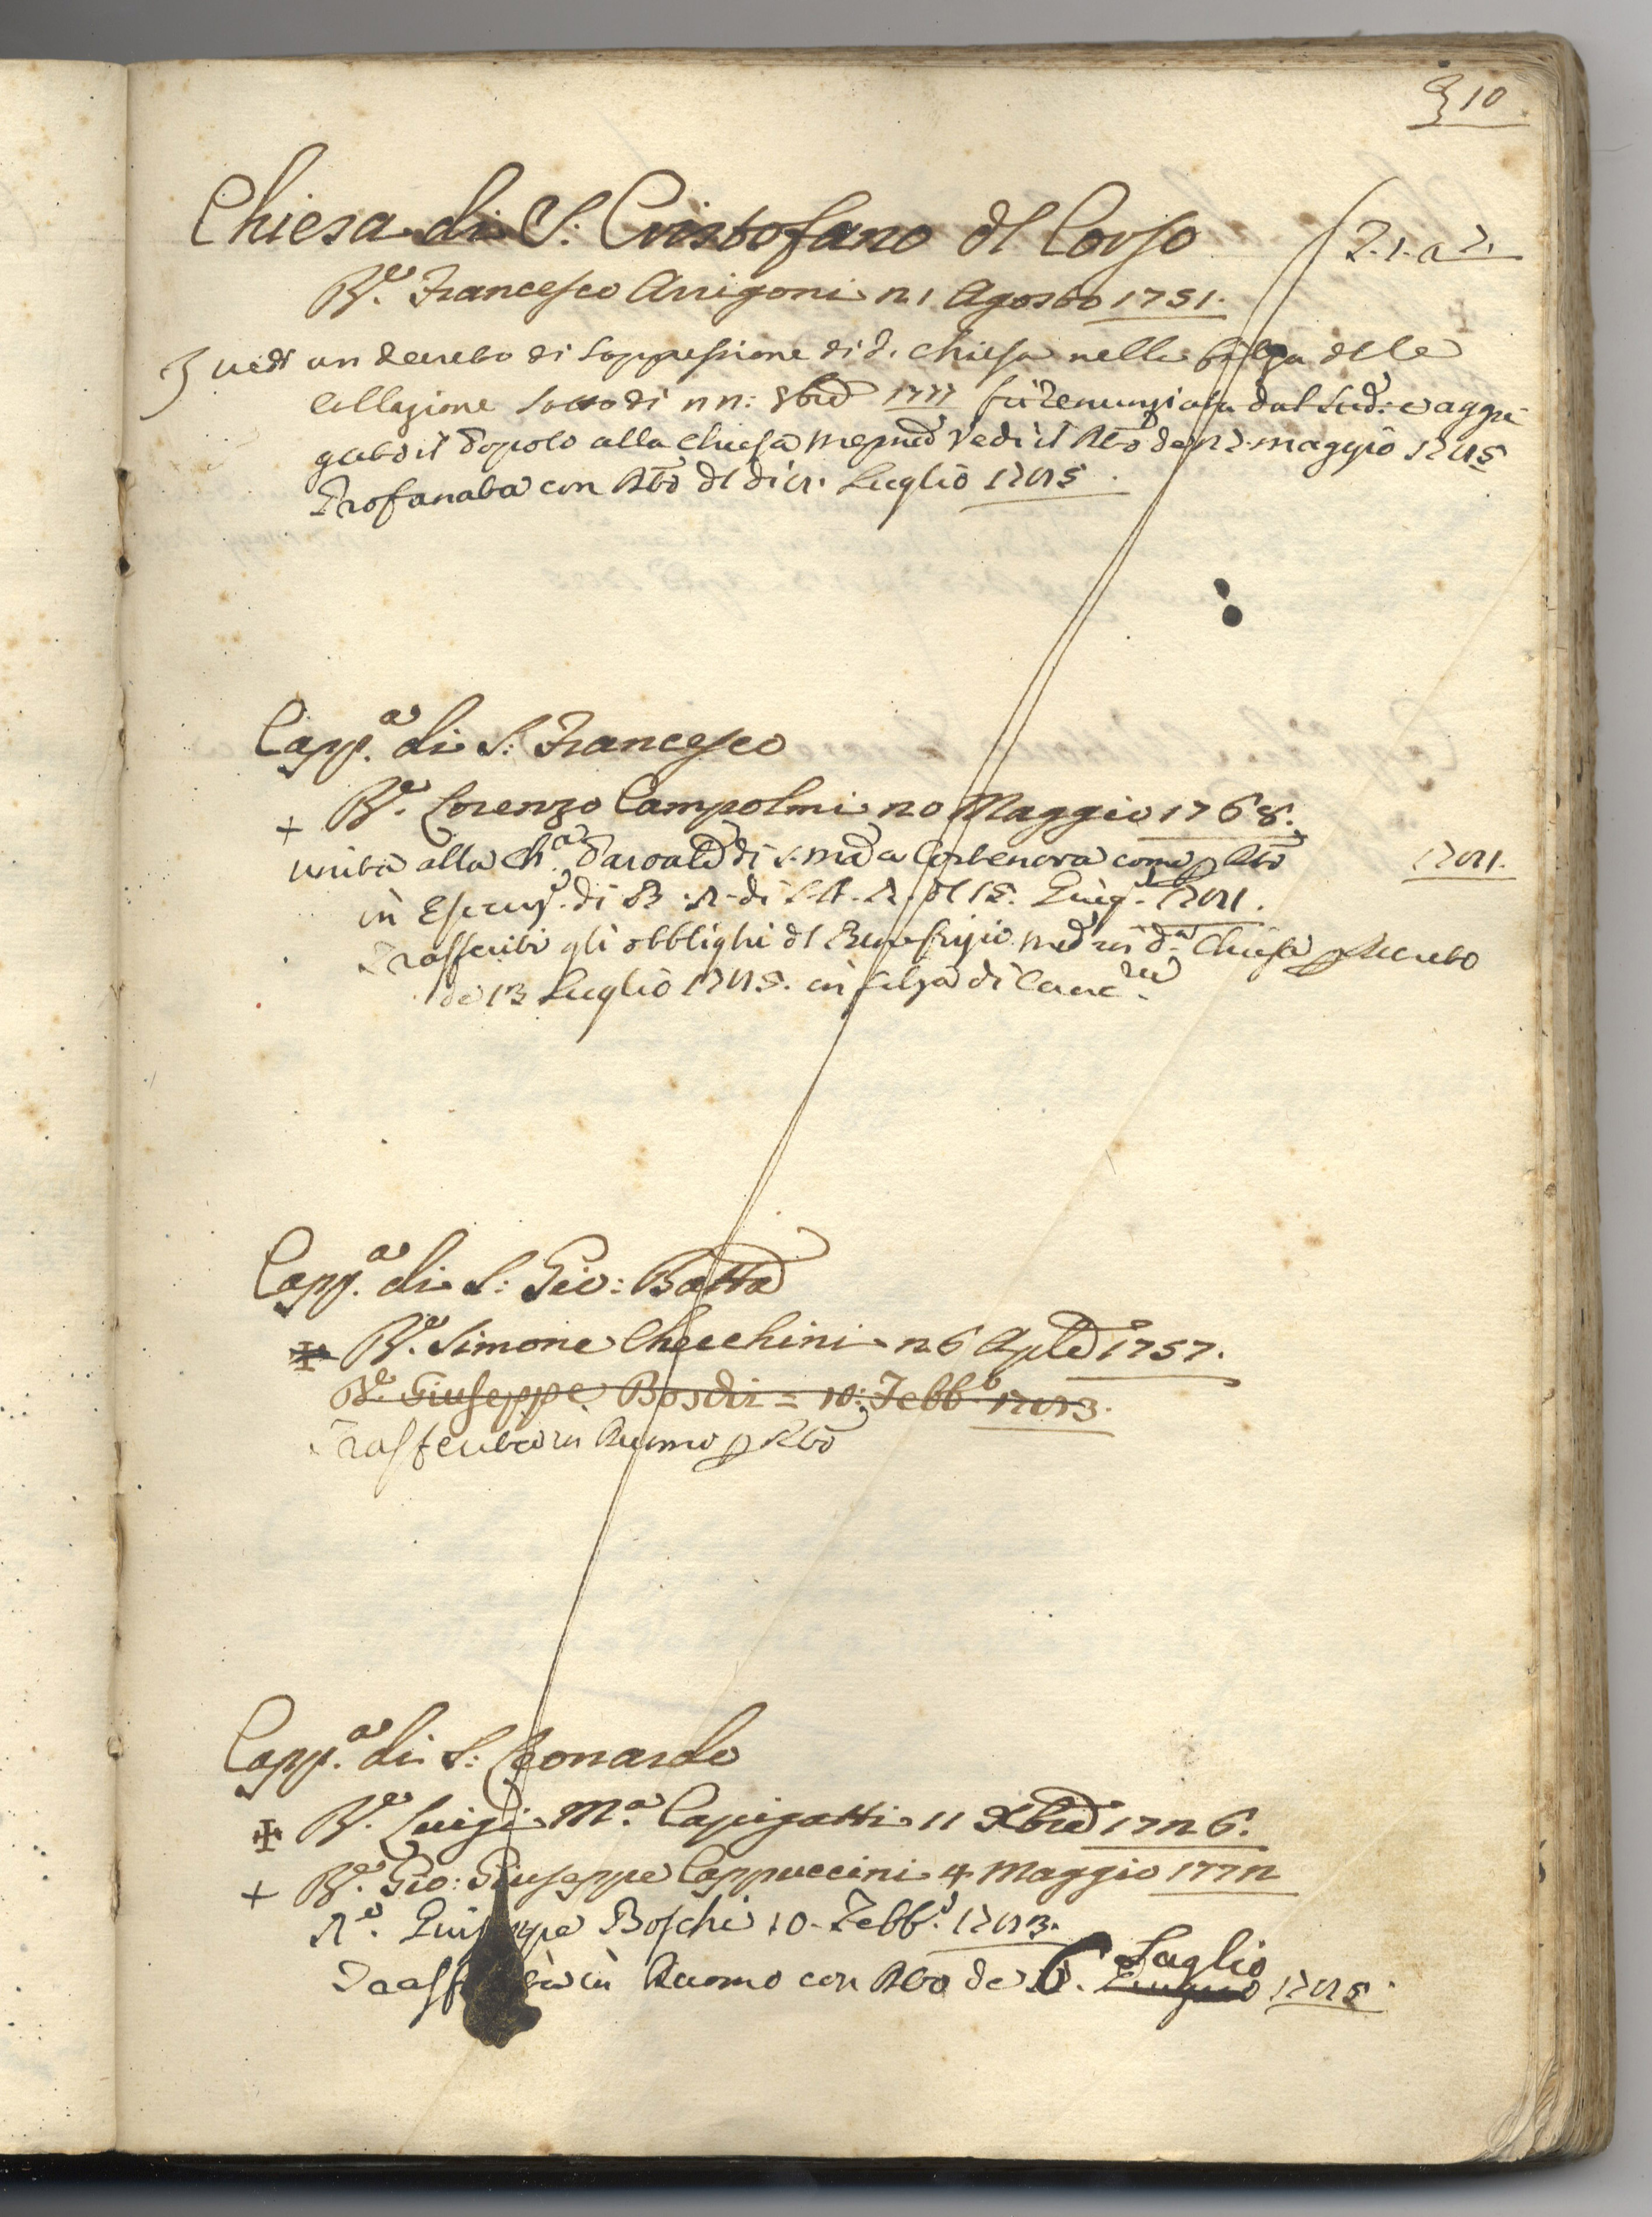 310
Chiesa di S: Cristofano dl Corso
Rde. Francesco Arrigoni 21 Agosto 1751.
vedi un decreto di Soppressione di d. chiesa nella filza delle
Collazione sotto di 22: 8bre 1777 fù renunziata dal Sud: e aggre
gato il Popolo alla Chiesa Vedi il de 27 maggio 1785
Profanata con dl di Luglio 1785.
Capp.a di S: Francesco
+ Re. Lorenzo Campolmi 20 Maggio 1768.
unita alla Ch.a di a come p
in di S. A. R. dl 15. Giug. 1781.
1781.
Trasferiti gli obblighi dl Benefizio in da Chiesa p Decreto
de 13 Luglio 1785. in filza di
Capp.a di S: Gio: Batta
Re. Simone Checchini 26 Aple 1757.
Re. Giuseppe Boschi = 10: Febb.o 1783.
Trasferito in p
Capp.a di S: Leonardo
Re. Luigi Ma. Capigatti 11 Xbre 1726.
+ Re. Gio: Giuseppe Cappuccini 4 Maggio 1772
Re. Giuseppe Boschi 10. Febb.o 1783.
in con de 6. Luglio 1785